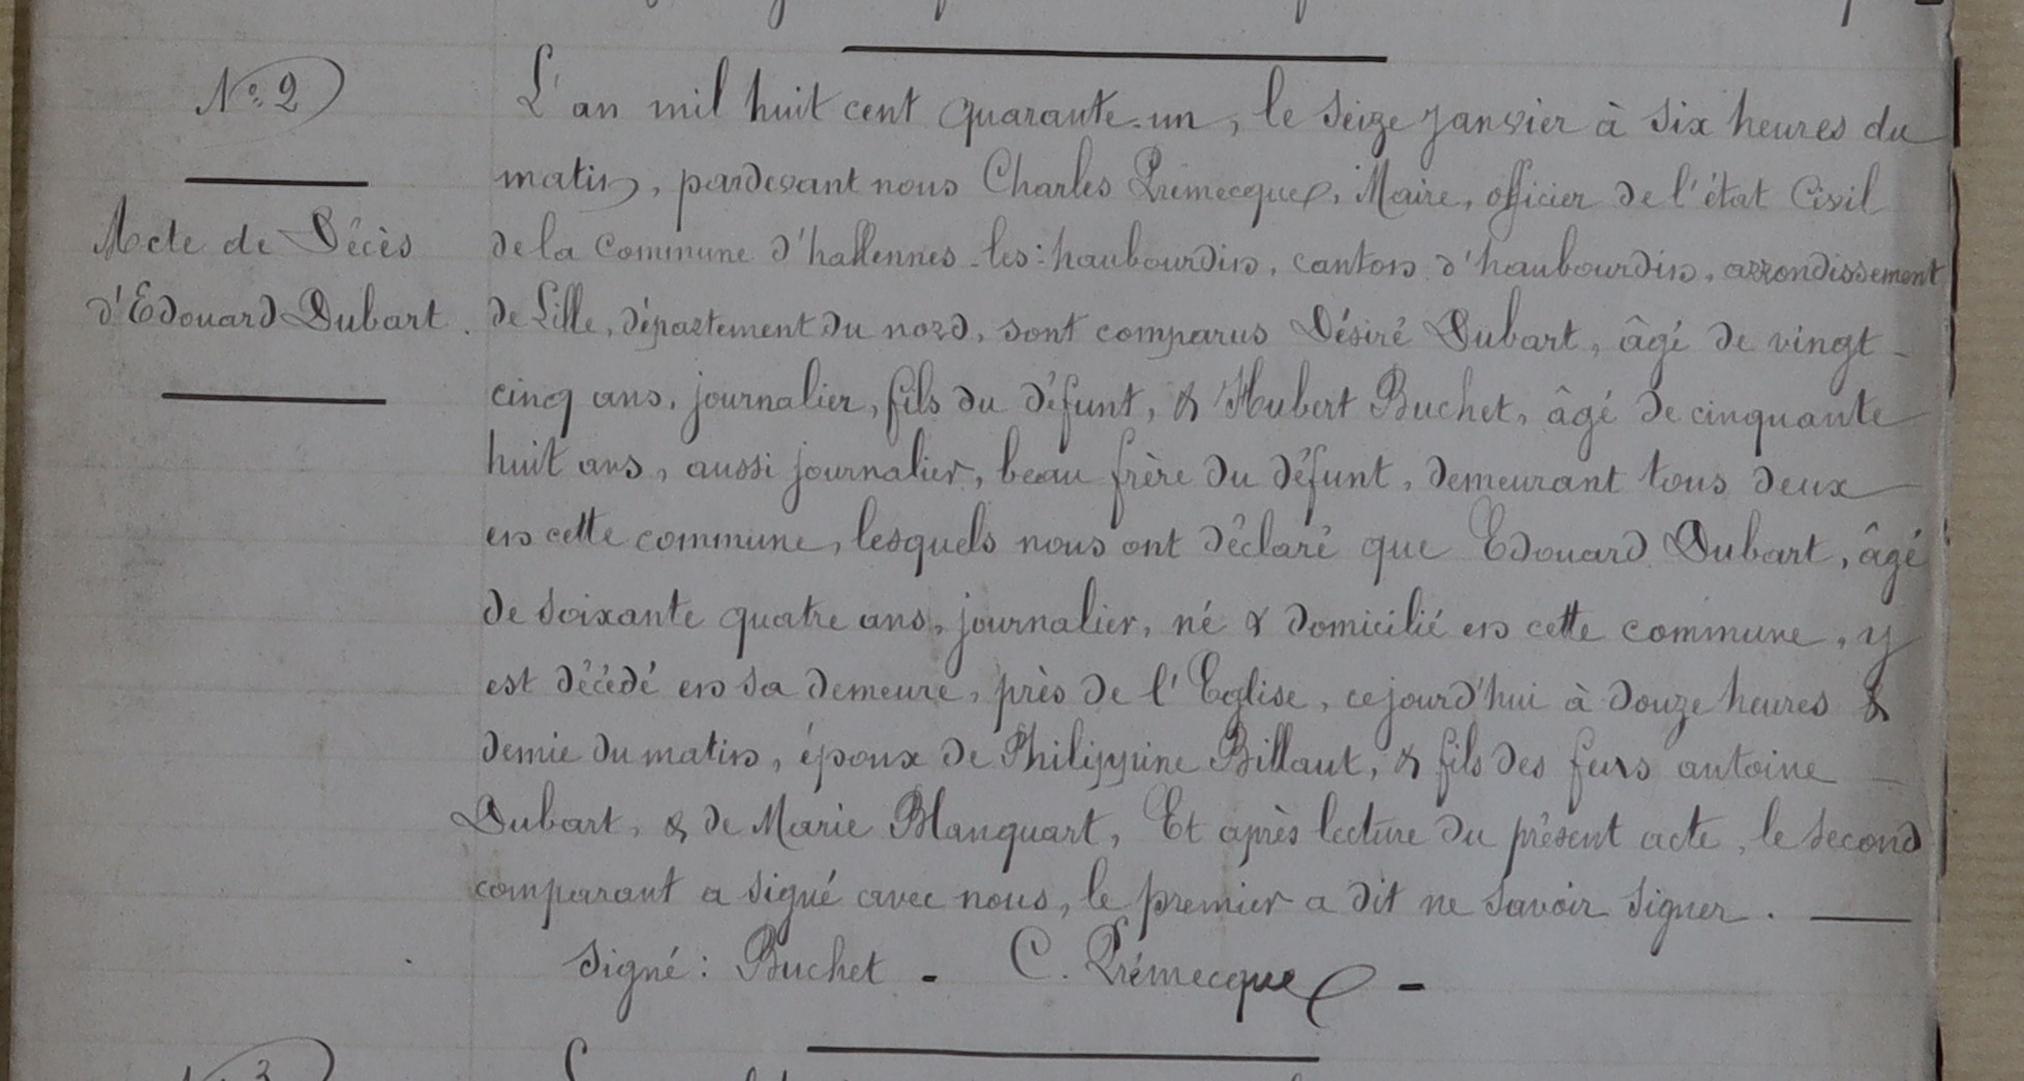 N.º 2
L'an mil huit cent quarante-un, le seize janvier à six heures du
matin, pardevant nous Charles Prémecque, Maire, officier de l'état Civil
Acte de Décès
de la Commune d'hallennes-les-haubourdin, canton d'haubourdin, arrondissement
d'Edouard Dubart.
de Lille, département du nord, sont comparus Désiré Dubart, âgé de vingt-
cinq ans, journalier, fils du défunt, & Hubert Buchet, âgé de cinquante
huit ans, aussi journalier, beau frère du défunt, demeurant tous deux
en cette commune, lesquels nous ont déclaré que Edouard Dubart, âgé
de soixante quatre ans, journalier, né & domicilié en cette commune, y
est décédé en sa demeure, près de l'Eglise, cejourd'hui à douze heures &
demie du matin, époux de Philippine Billaut, & fils des feus antoine
Dubart, & de Marie Blanquart, Et après lecture du présent acte, le second
comparant a signé avec nous, le premier a dit ne savoir signer.
signé : Buchet - C. Prémecque -
3